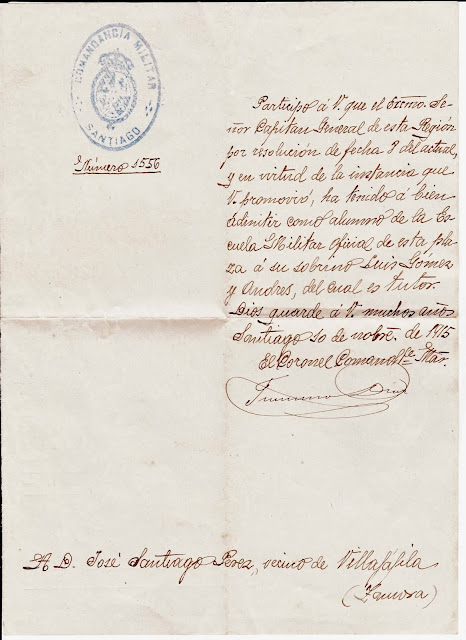 COMANDANCIA MILITAR
SANTIAGO
Número 1550
Participo á V. que el Excmo. Se-
ñor Capitan General de esta Región
por resolución de fecha 7 del actual,
y en virtud de la instancia que
V. promovió, ha tenido á bien
admitir como alumno de la Es-
cuela Militar oficial de esta pla-
za á su sobrino Luis Gómez
y Andres, del cual es tutor.
Dios guarde á V. muchos años
Santiago 10 de nobre. de 1915
El Coronel Comandte. Mtar.
A D. José Santiago Perez, vecino de Villafáfila
(Zamora)